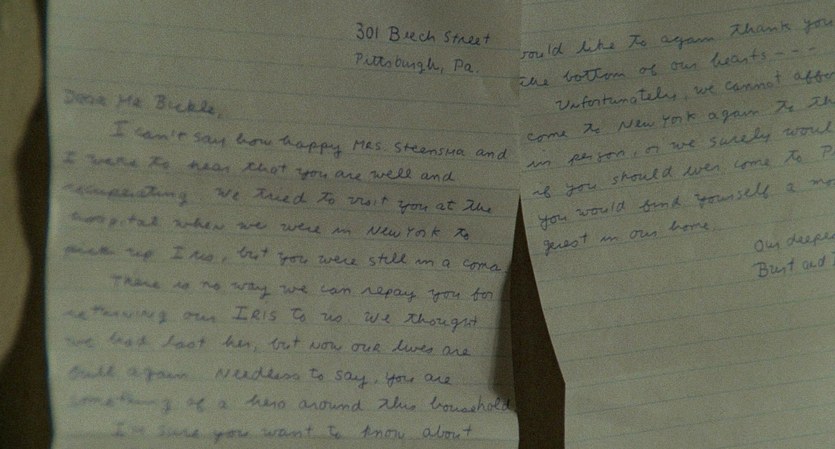 301 Beech Street
Pittsburgh, Pa.
Dear Mr. Bickle,
I can't say how happy MRS. Steensma and
I were to hear that you are well and
recuperating. We tried to visit you at the
hospital when we were in New York to
pick up Iris, but you were still in a coma
There is no way we can repay you for
returning our IRIS to us. We thought
we had lost her, but now our lives are
full again. Needless to say, you are
something of a hero around this household
I'm sure you want to know about
would like to again thank you
the bottom of our hearts - - -
Unfortunately, we cannot affor
come to New York again to th
in person, or we surely woul
if you should ever come to P
you would find yourself a mo
guest in our home.
Our deepes
Burt and I